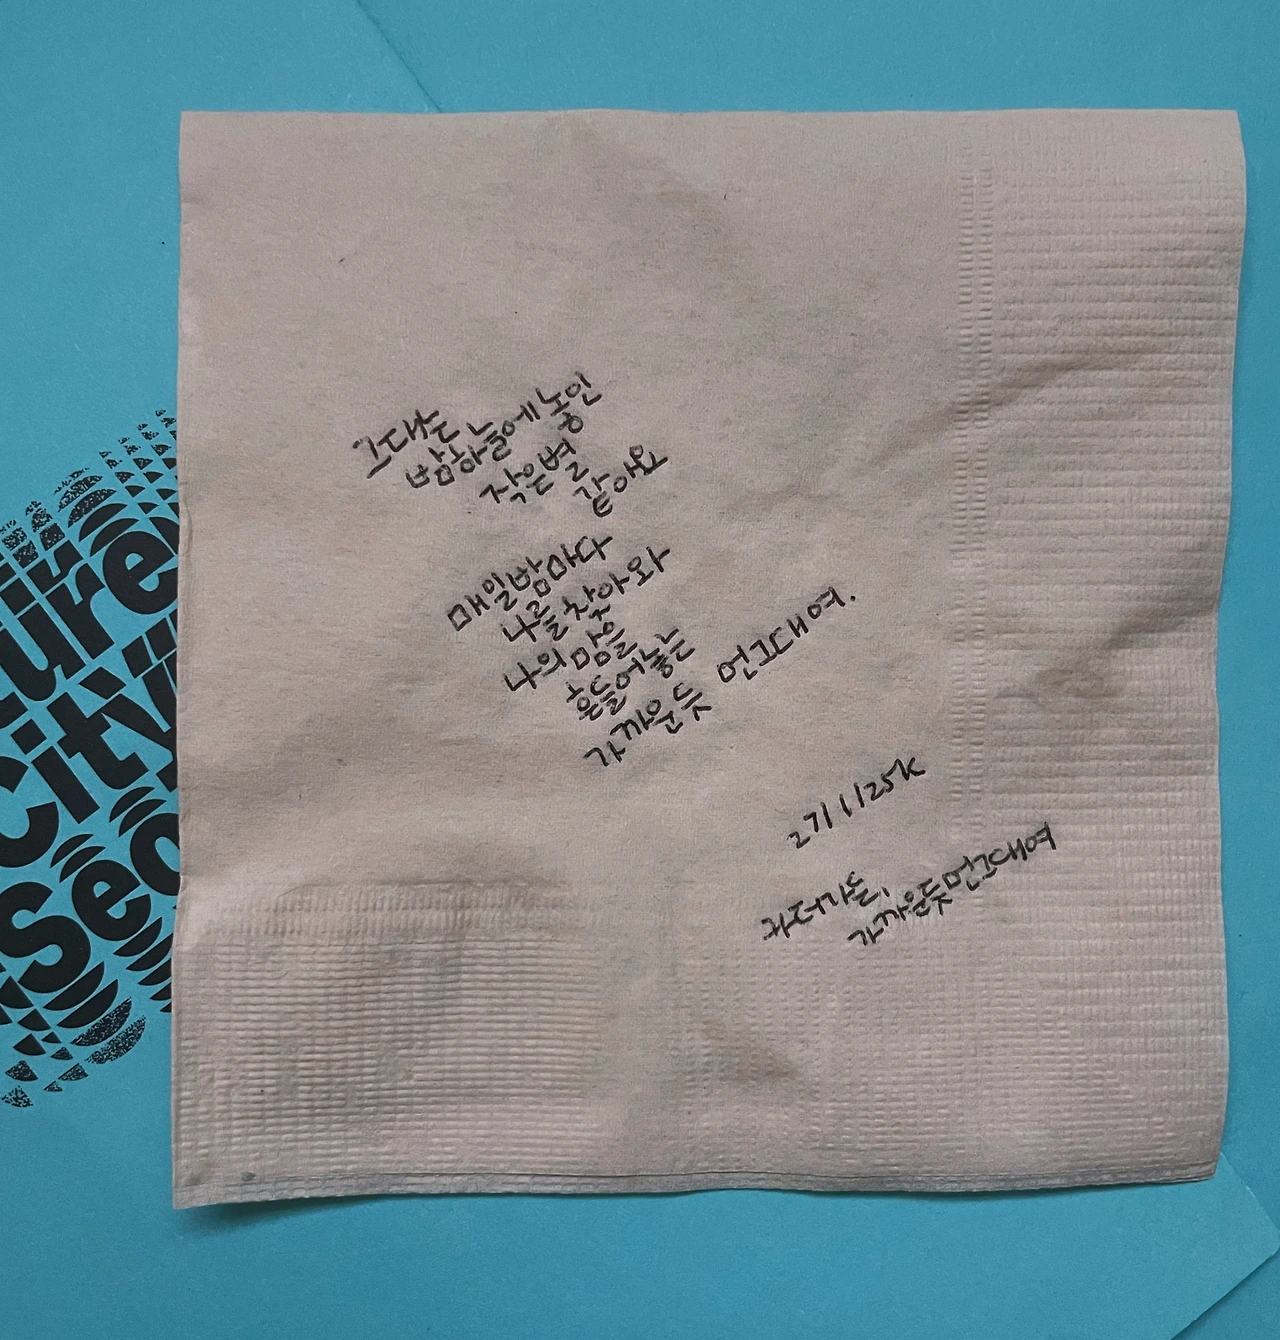 ure
city
seo
그대는
밤하늘에 놓인
작은별
같아요
매일밤마다
나를 찾아와
나의 맘을
흔들어놓는
가까운듯 먼그대여.
27/1/25K
차더가을,
가까운듯먼그대여